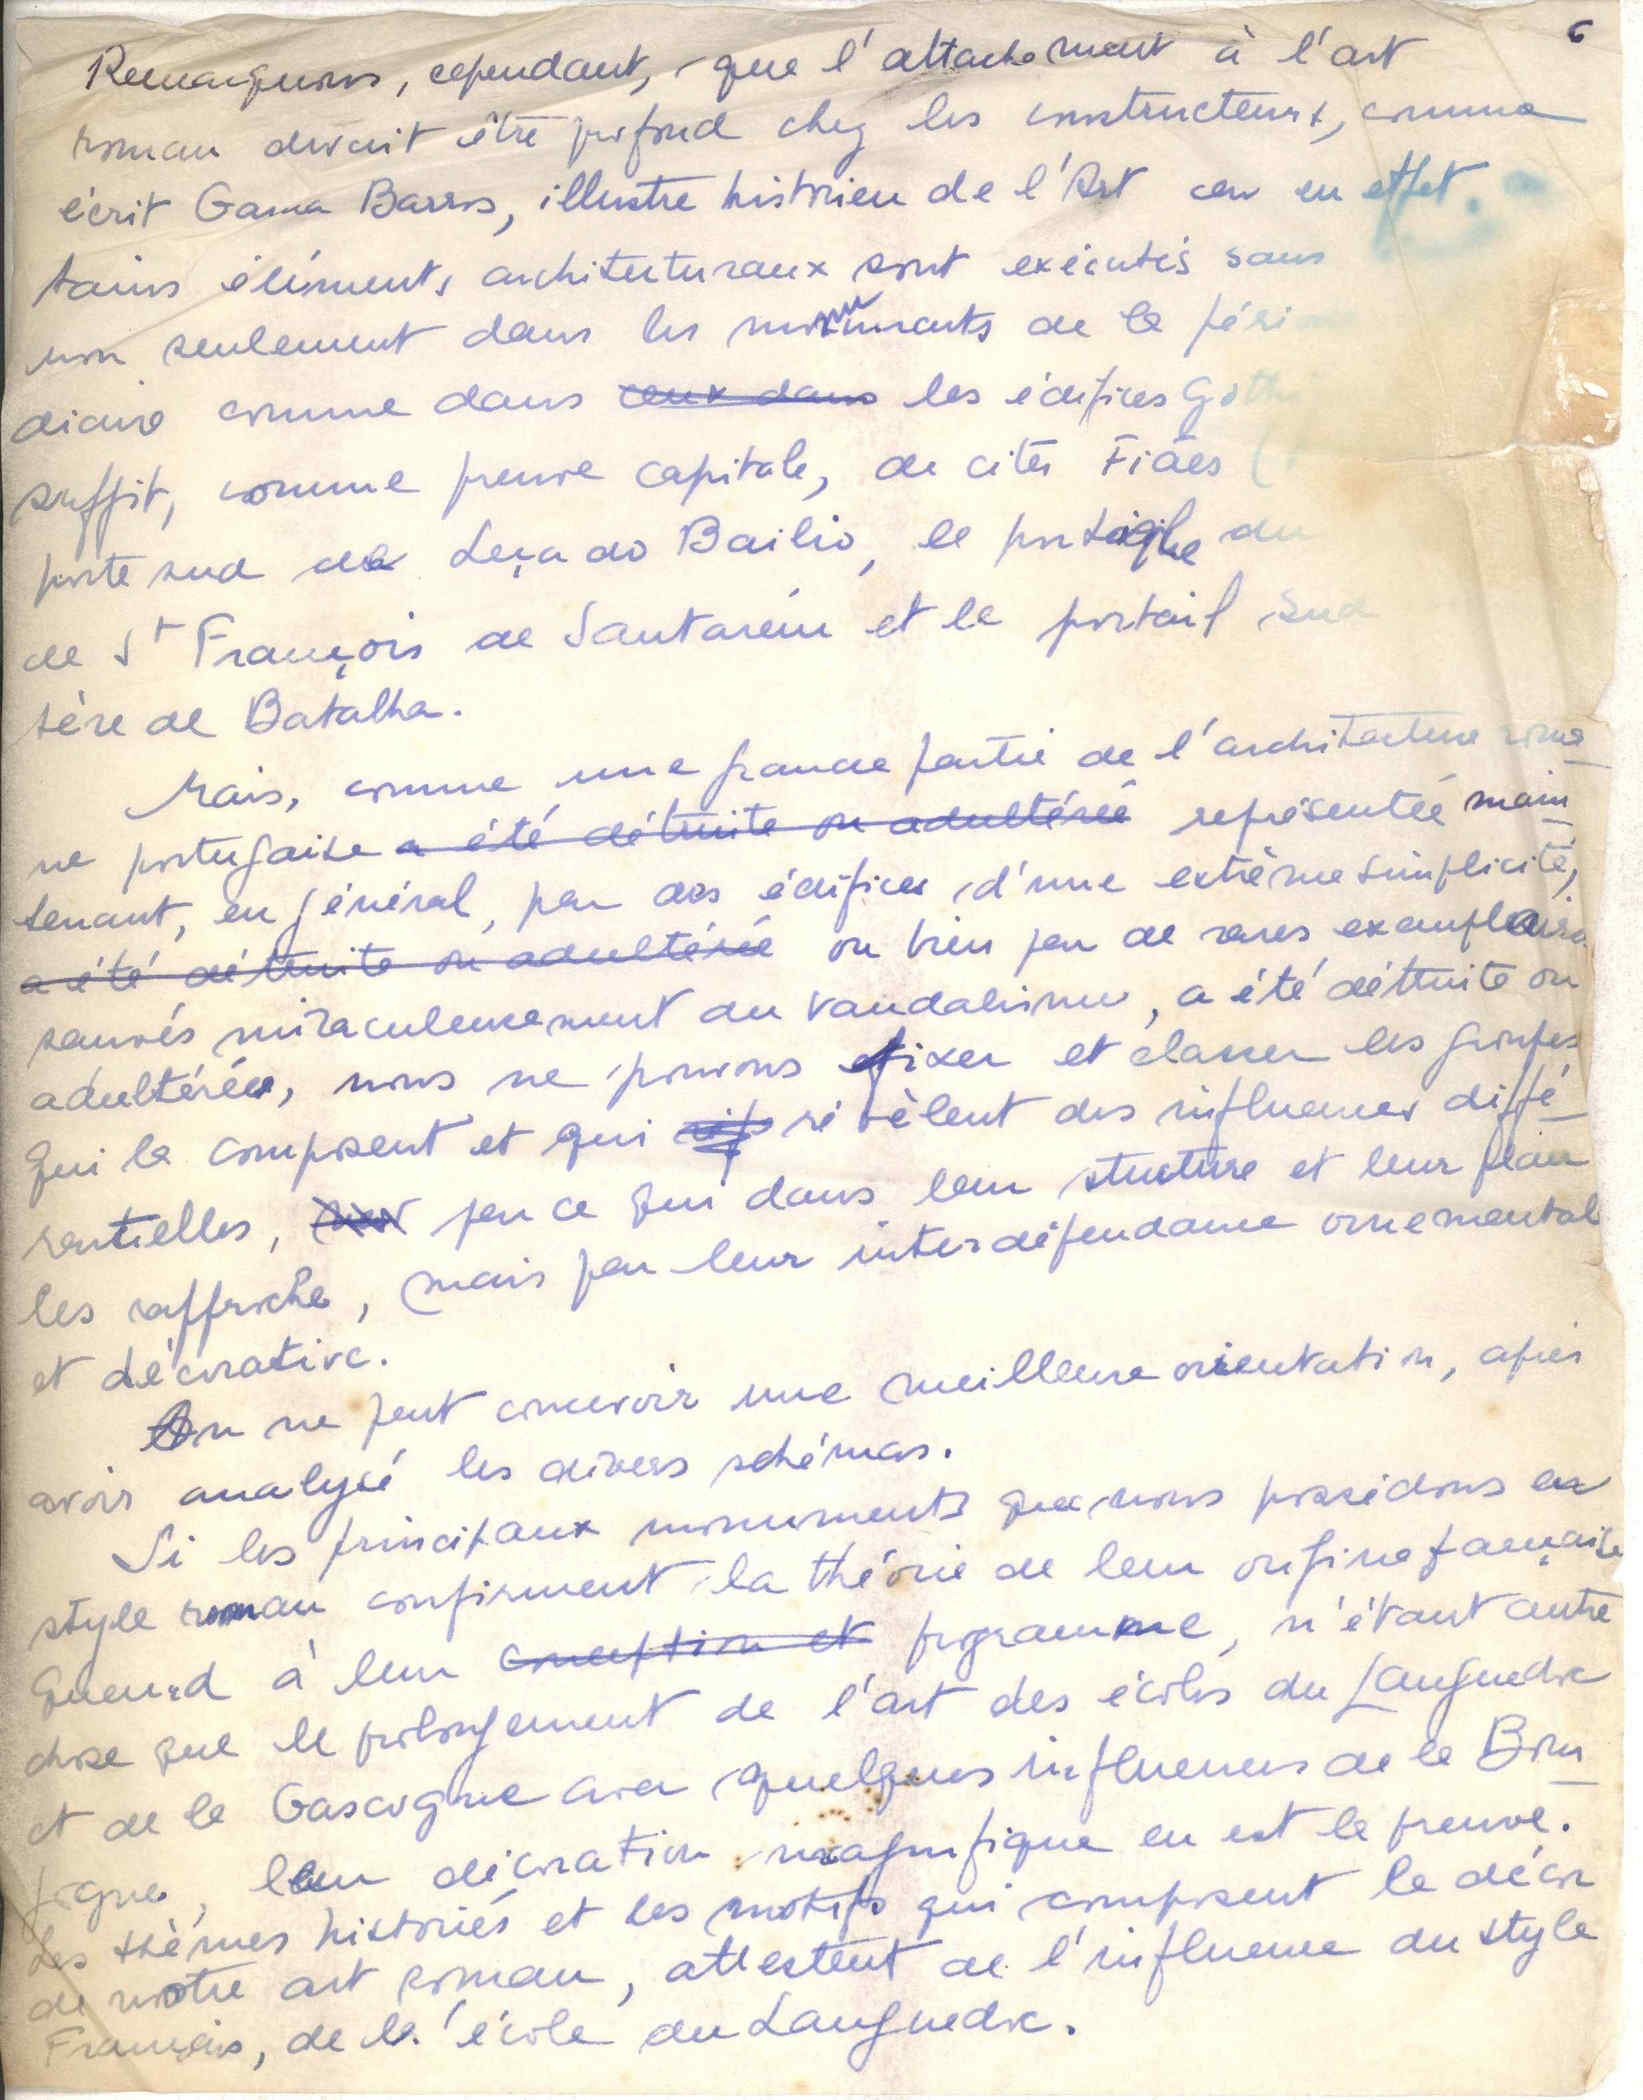 6
Remarquons, cependant, que l'attachement à l'art
roman devait être profond chez les constructeurs, comme
écrit Gama Barros, illustre historien de l'Art car en effet.
tains éléments architecturaux sont exécutés sans
non seulement dans les monuments de la péri
diaire comme dans ceux dans les édifices Goth
suffit, comme preuve capitale, de citer Fiães (
porte sud de Leça do Bailio, le du
de St François de Santarém et le portail sud
tère de Batalha.
Mais, comme une grande partie de l'architecture roma
ne portugaise a été détruite ou adultérée représentée main
tenant, en général, par des édifices d'une extrême simplicité,
a été détruite ou adultérée ou bien par de rares exemplaires
sauvés miraculeusement du vandalisme, a été détruite ou
adultérée, nous ne pouvons fixer et classer les groupes
qui la composent et qui révèlent des influences diffé-
rentielles, par ce qui dans leur stucture et leur plan
les rapproche, mais par leur interdépendance ornemental
et décorative.
On ne peut concevoir une meilleure orientation, après
avoir analysé les divers schémas.
Si les principaux monuments que nous possédons en
style roman confirment la théorie de leur origine française
quand à leur conception et programme, n'étant autre
chose que le prolongement de l'art des écoles du Languedoc
et de la Gascogne avec quelques influences de la Bour
gogne, leur décoration magnifique en est la preuve.
Les thèmes historiés et les motifs qui composent le décor
de notre art roman, attestent de l'influence du style
Français, de l'école du Languedoc.